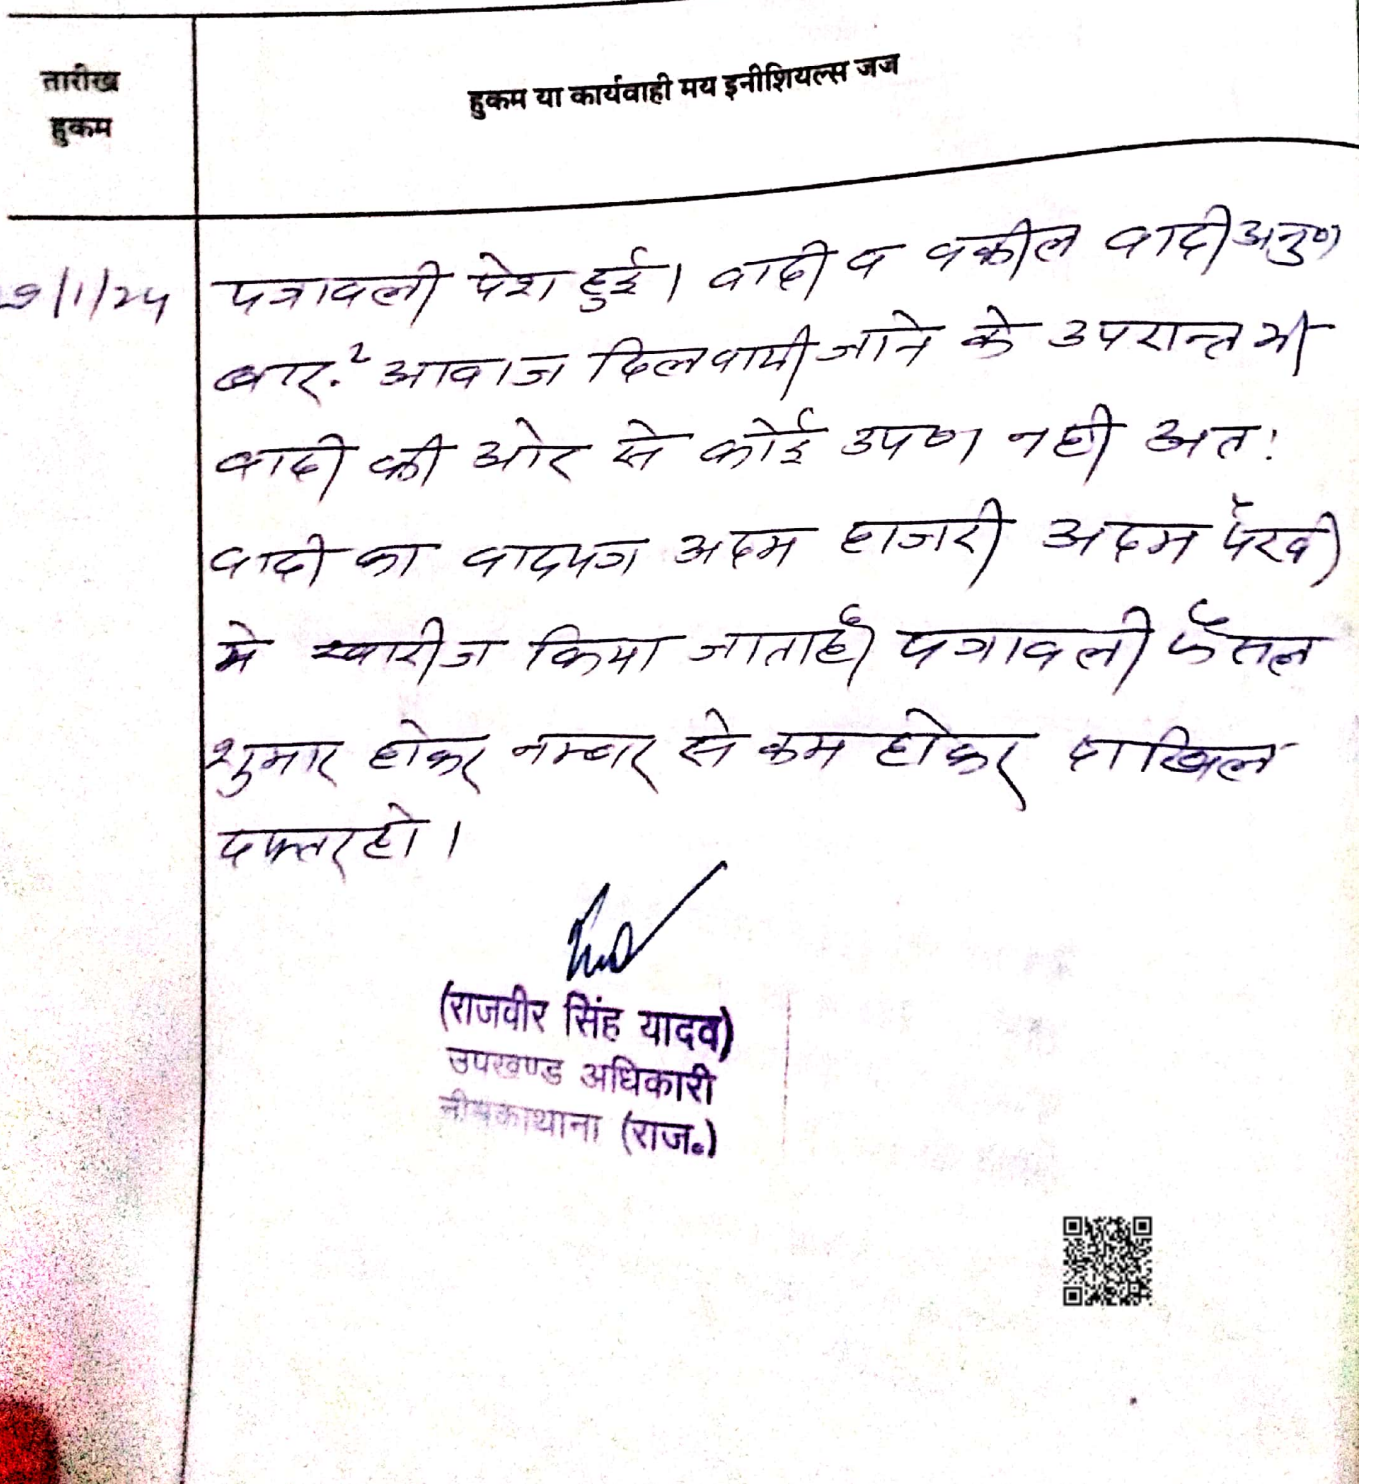 तारीख
हुकम
हुकम या कार्यवाही मय इनीशियल्स जज
9/1/24
पत्रावली पेश हुई। वादी व वकील वादी अनु०
बार-२ आवाज दिलवायी जाने के उपरान्त भी
वादी की ओर से कोई उप० नही अत:
वादी का वादपत्र अदम हाजरी अदम पैरवी
मे खारीज किया जाता है। पत्रावली फैसल
शुमार होकर नम्बर से कम होकर दाखिल
दफ्तर हो।
(राजवीर सिंह यादव)
उपखण्ड अधिकारी
नीमकाथाना (राज०)